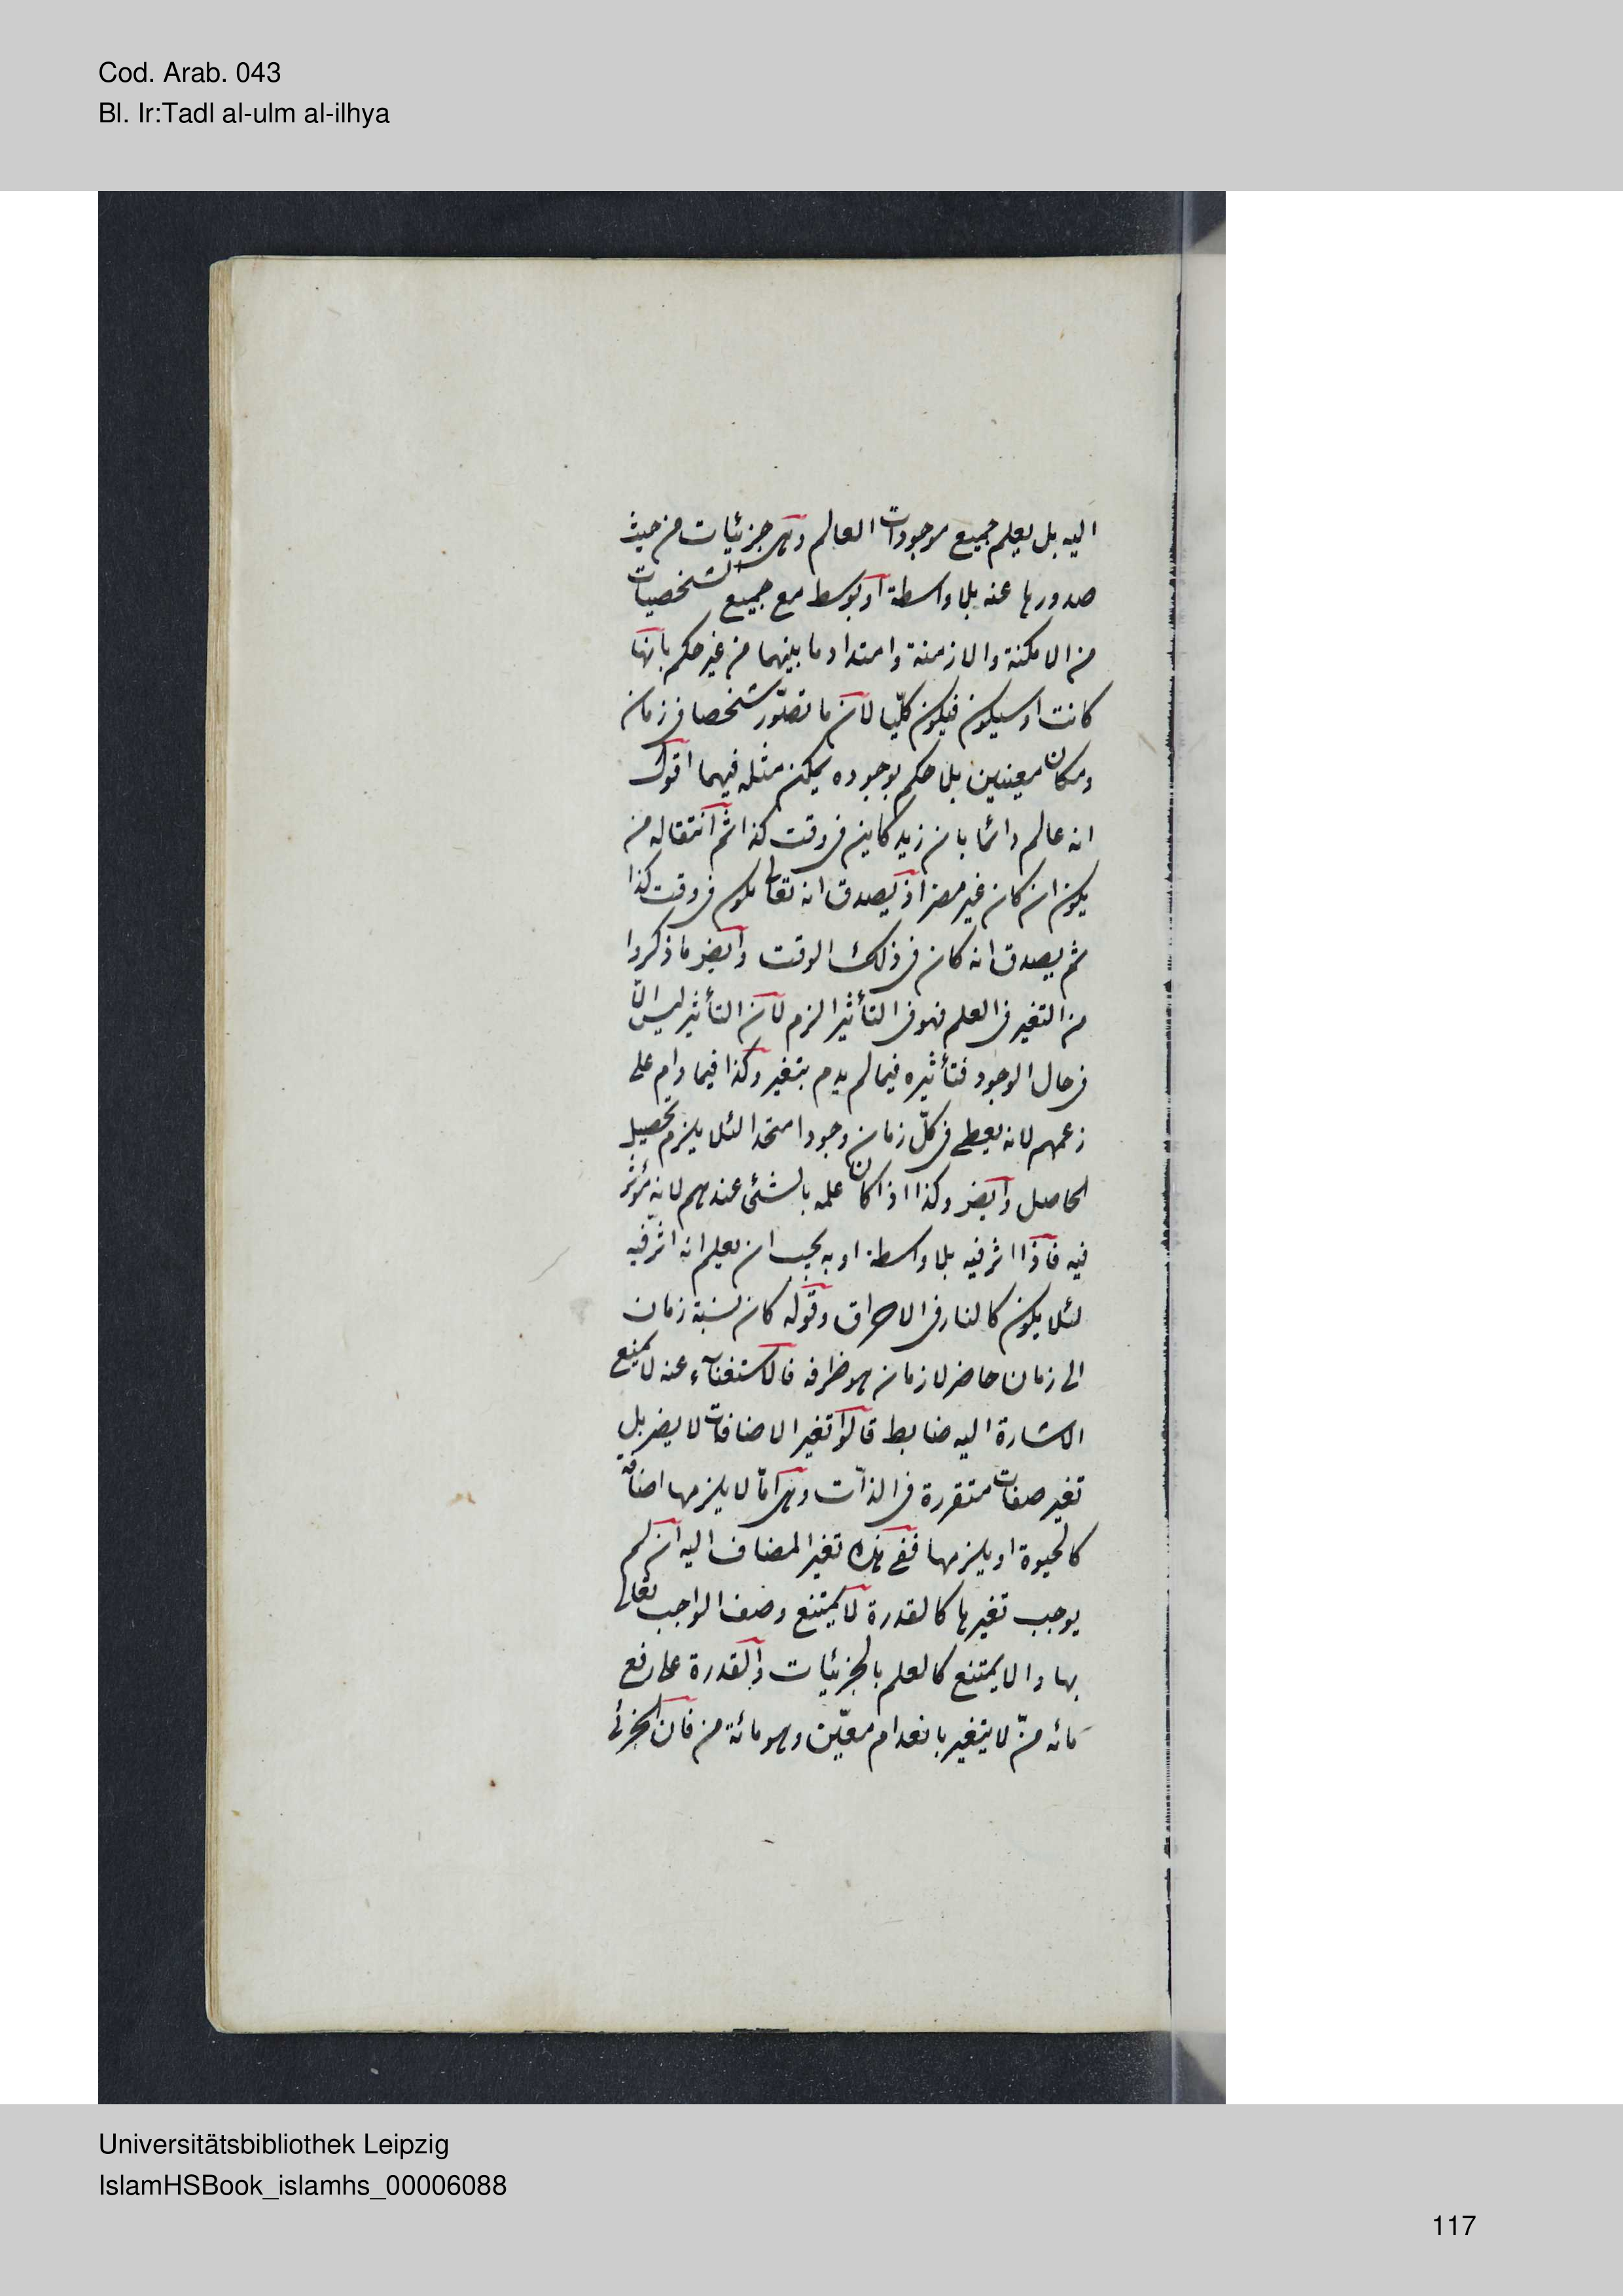 Cod. Arab. 043
Bl. Ir:Tadl al-ulm al-ilhya
اليه بل يعلم جميع موجودات العالم وهى جزئيات من حيث
صدورها عنه بلا واسطة او بوسط مع جميع الشخصيات
من الامكنة والازمنة وامتداد ما بينهما من غير حكم بانها
كانت او سيكون فيكون كلّيا لان ما تصوّر شخصا فى زمان
ومكان معينين بلا حكم بوجوده يمكن مثله فيهما اقول
انه عالم دائما بان زيد كاين فى وقت كذا ثم انتقاله من
يكون ان كان غير مضر اذ يصدق انه تعالى يكون فى وقت كذا
ثم يصدق انه كان فى ذلك الوقت وايضر ما ذكروا
من التغير فى العلم فهو فى التأثير الزم لان التأثير ليس الّا
فى حال الوجود فتأثيره فيما لم يدم يتغير وكذا فيما دام على
زعمهم لانه يعطى فى كلّ زمان وجودا متحدا لئلا يلزم تحصيل
الحاصل وايضر وكذا اذا كان علمه بالشئى عندهم لانه مؤثر
فيه فاذا اثر فيه بلا واسطة او به يجب ان يعلم انه اثر فيه
لئلا يكون كالنار فى الاحراق وقوله كان نسبة زمان
الى زمان حاضر لا زمان هو ظرفه فالاستغناء عنه لا يمنع
الاشارة اليه ضابط قالوا تغير الاضافات لا يضر بل
تغير صفات متقررة فى الذّات وهى امّا لا يلزمها اضافة
كالحيوة او يلزمها ففى هذه تغير المضاف اليه ان لم
يوجب تغيرها كالقدرة لا يمتنع وصف الواجب تعالى
بها والا يمتنع كالعلم بالجزئيات والقدرة على رفع
مائه منّ لا يتغير بانعدام معيّن وهو مائة من فان الجزئى
Universitätsbibliothek Leipzig
IslamHSBook_islamhs_00006088
117